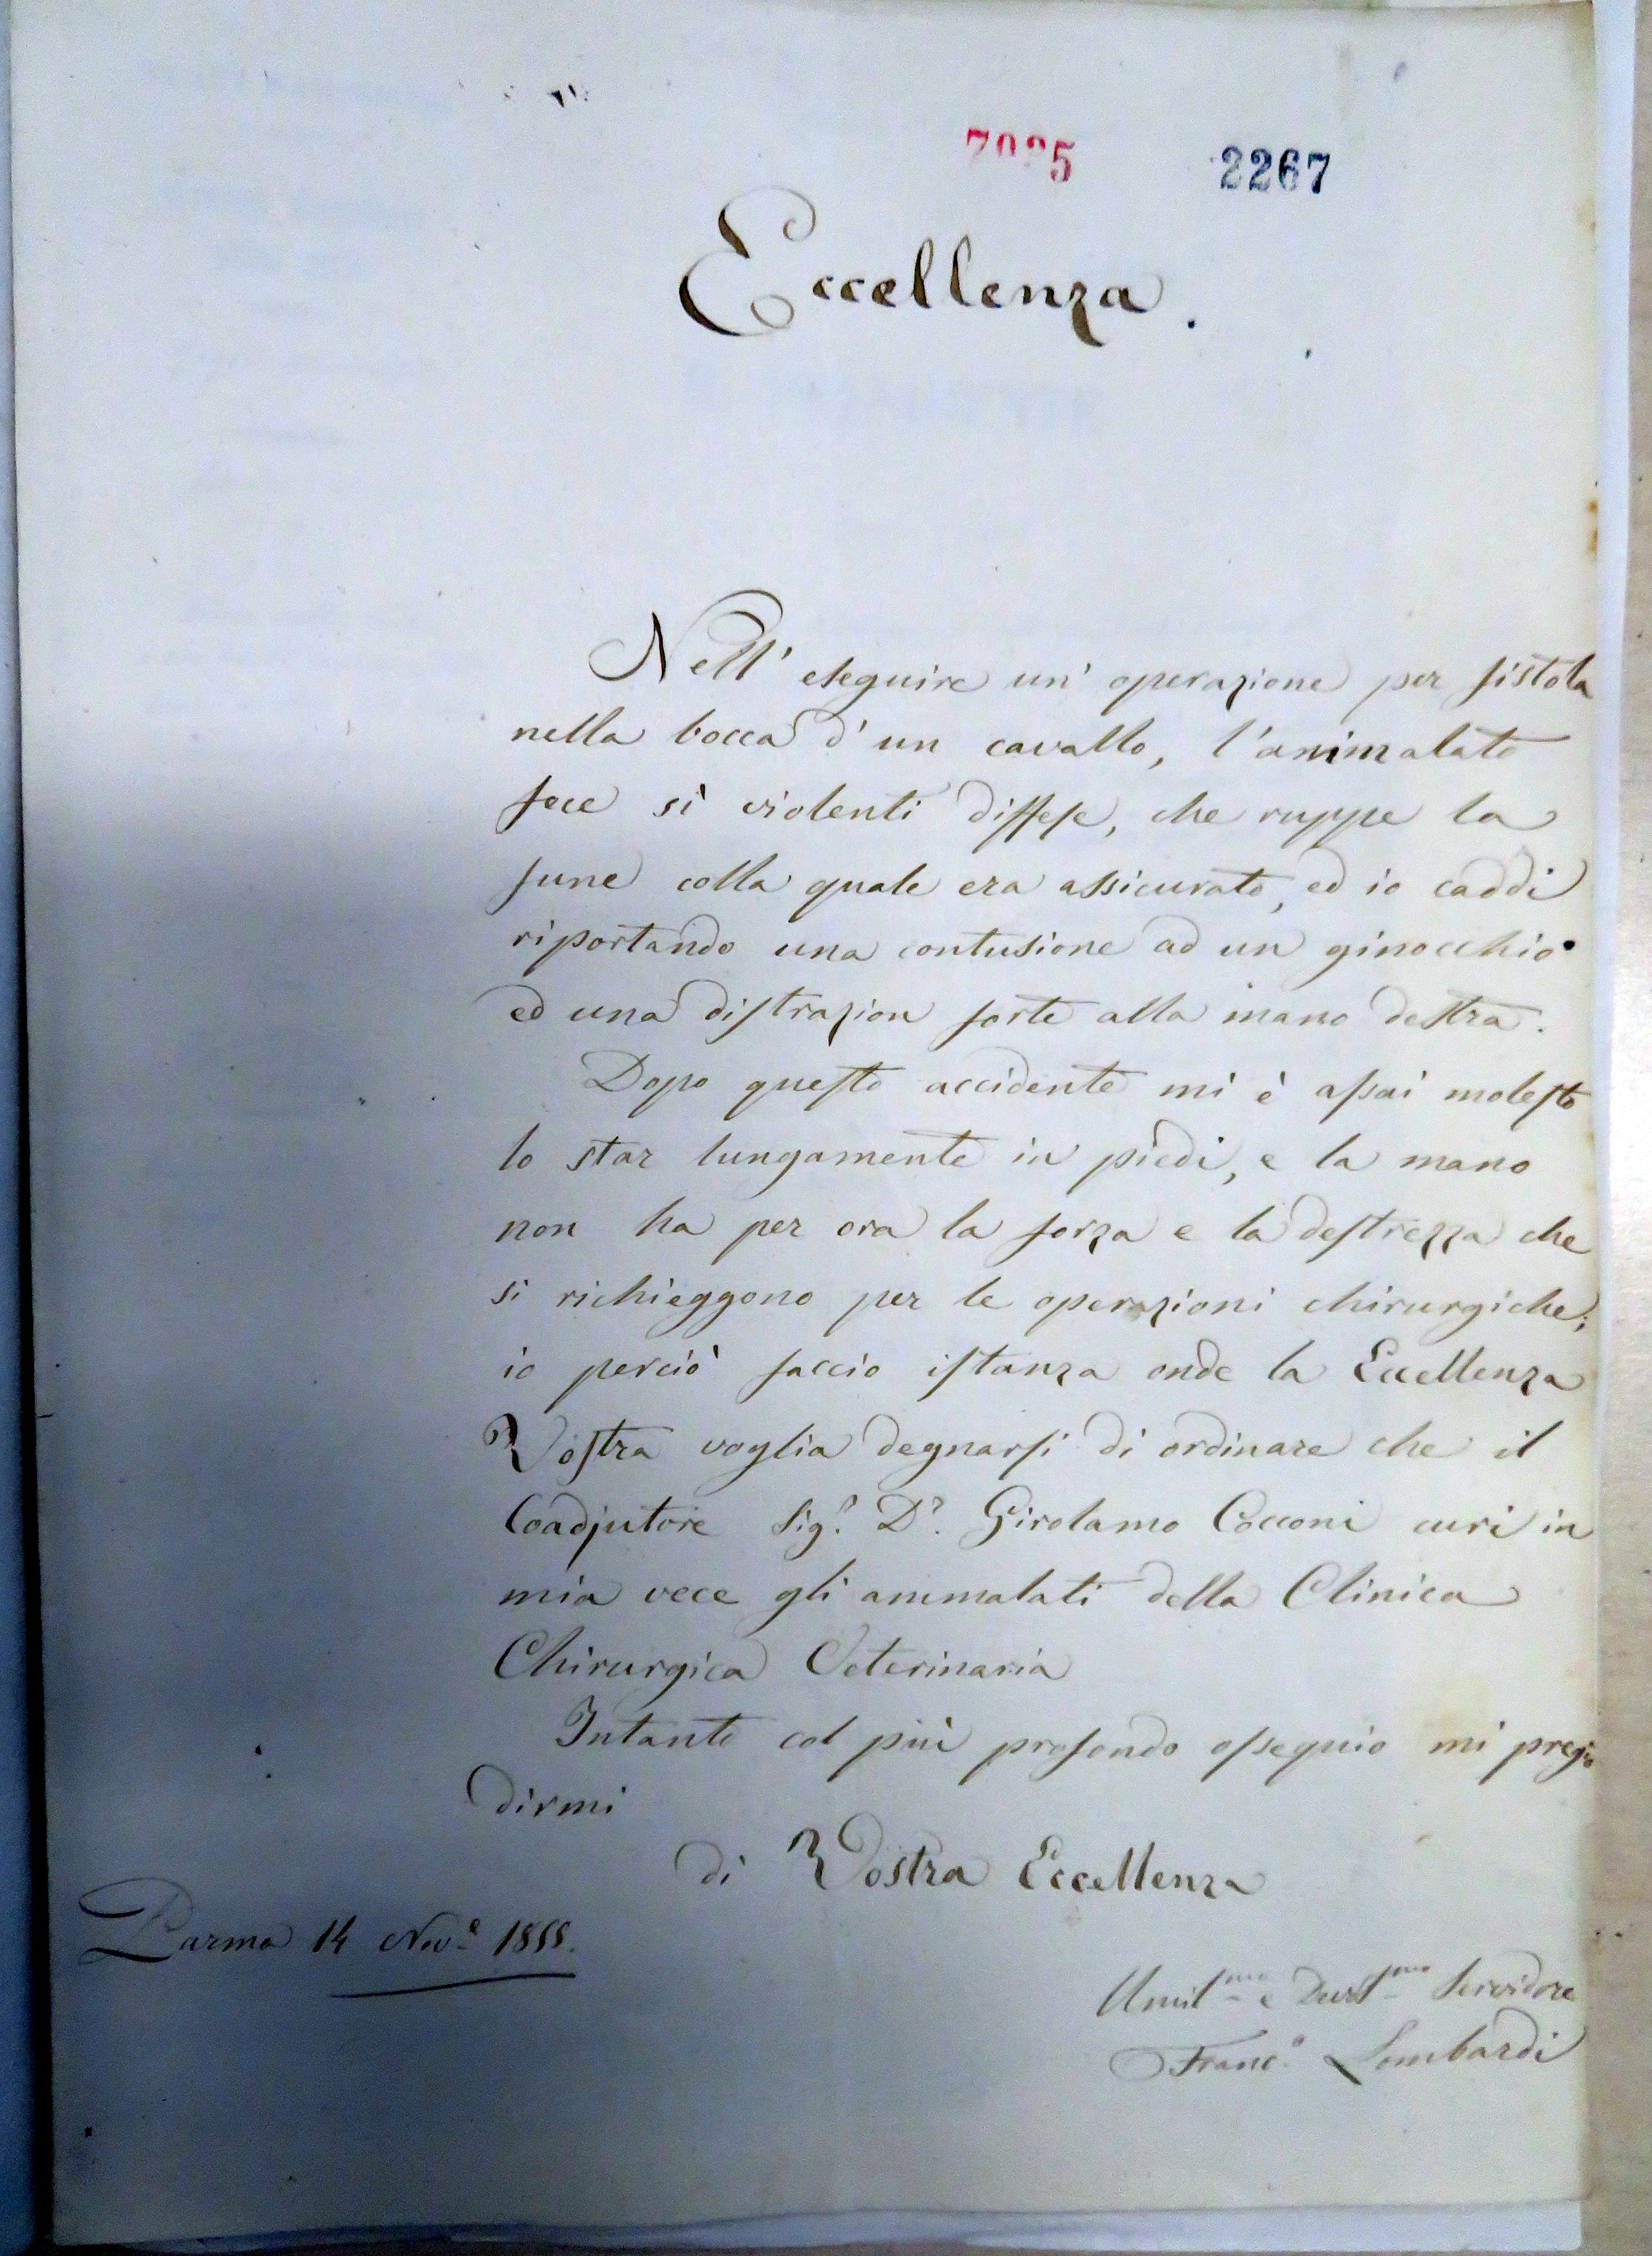 2267
Eccellenza.
Nell' eseguire un' operazione per fistola
nella bocca d' un cavallo, l'ammalato
fece sì violenti diffese, che ruppe la
fune colla quale era assicurato, ed io caddi
riportando una contusione ad un ginocchio
ed una distrazion forte alla mano destra.
Dopo questo accidente mi è assai molesto
lo star lungamente in piedi, e la mano
non ha per ora la forza e la destrezza che
si richieggono per le operazioni chirurgiche;
io perciò faccio istanza onde la Eccellenza
Vostra voglia degnarsi di ordinare che il
Coadjutore Sig.r D.r Girolamo Cocconi curi in
mia vece gli ammalati della Clinica
Chirurgica Veterinaria
Intanto col più profondo ossequio mi pregio
dirmi
di Vostra Eccellenza
Parma 14 Nov.e 1855.
Umil.mo e Dev.mo Servidore
Franc.o Lombardi